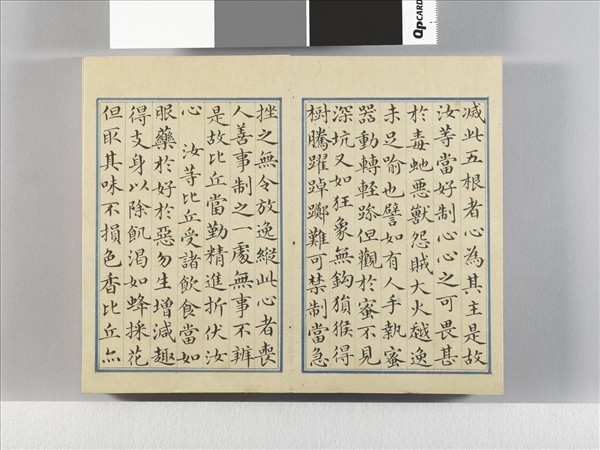 滅此五根者心為其主是故
汝等當好制心心之可畏甚
於毒虵惡獸怨賊大火越逸
未足喻也譬如有人手執蜜
器動轉輕躁但觀於蜜不見
深坑又如狂象無鈎猨猴得
樹騰躍踔躑難可禁制當急
挫之無令放逸縱此心者喪
人善事制之一處無事不辨
是故比丘當勤精進折伏汝
心 汝等比丘受諸飲食當如
服藥於好於惡勿生增減趣
得支身以除飢渴如蜂採花
但取其味不損色香比丘亦
QPCARD